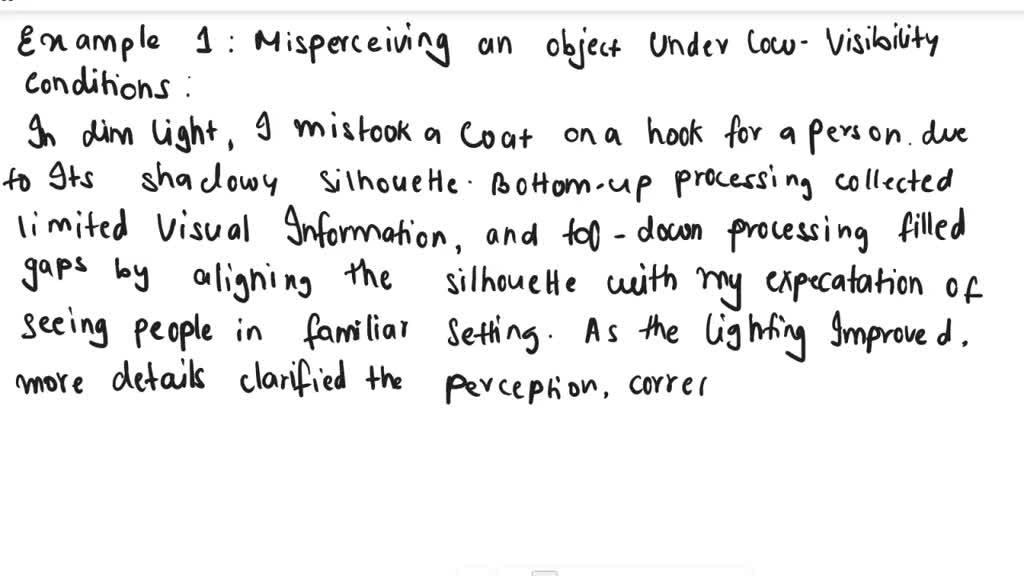 Example 1 : Misperceiving an object under Low - Visibility
Conditions :
In dim light, I mistook a Coat on a hook for a person. due
to Its shadowy silhouette. Bottom-up processing collected
limited Visual Information, and top - down processing filled
gaps by aligning the silhouette with my expecatation of
seeing people in familiar setting. As the lighting Improved.
more details clarified the perception, correc